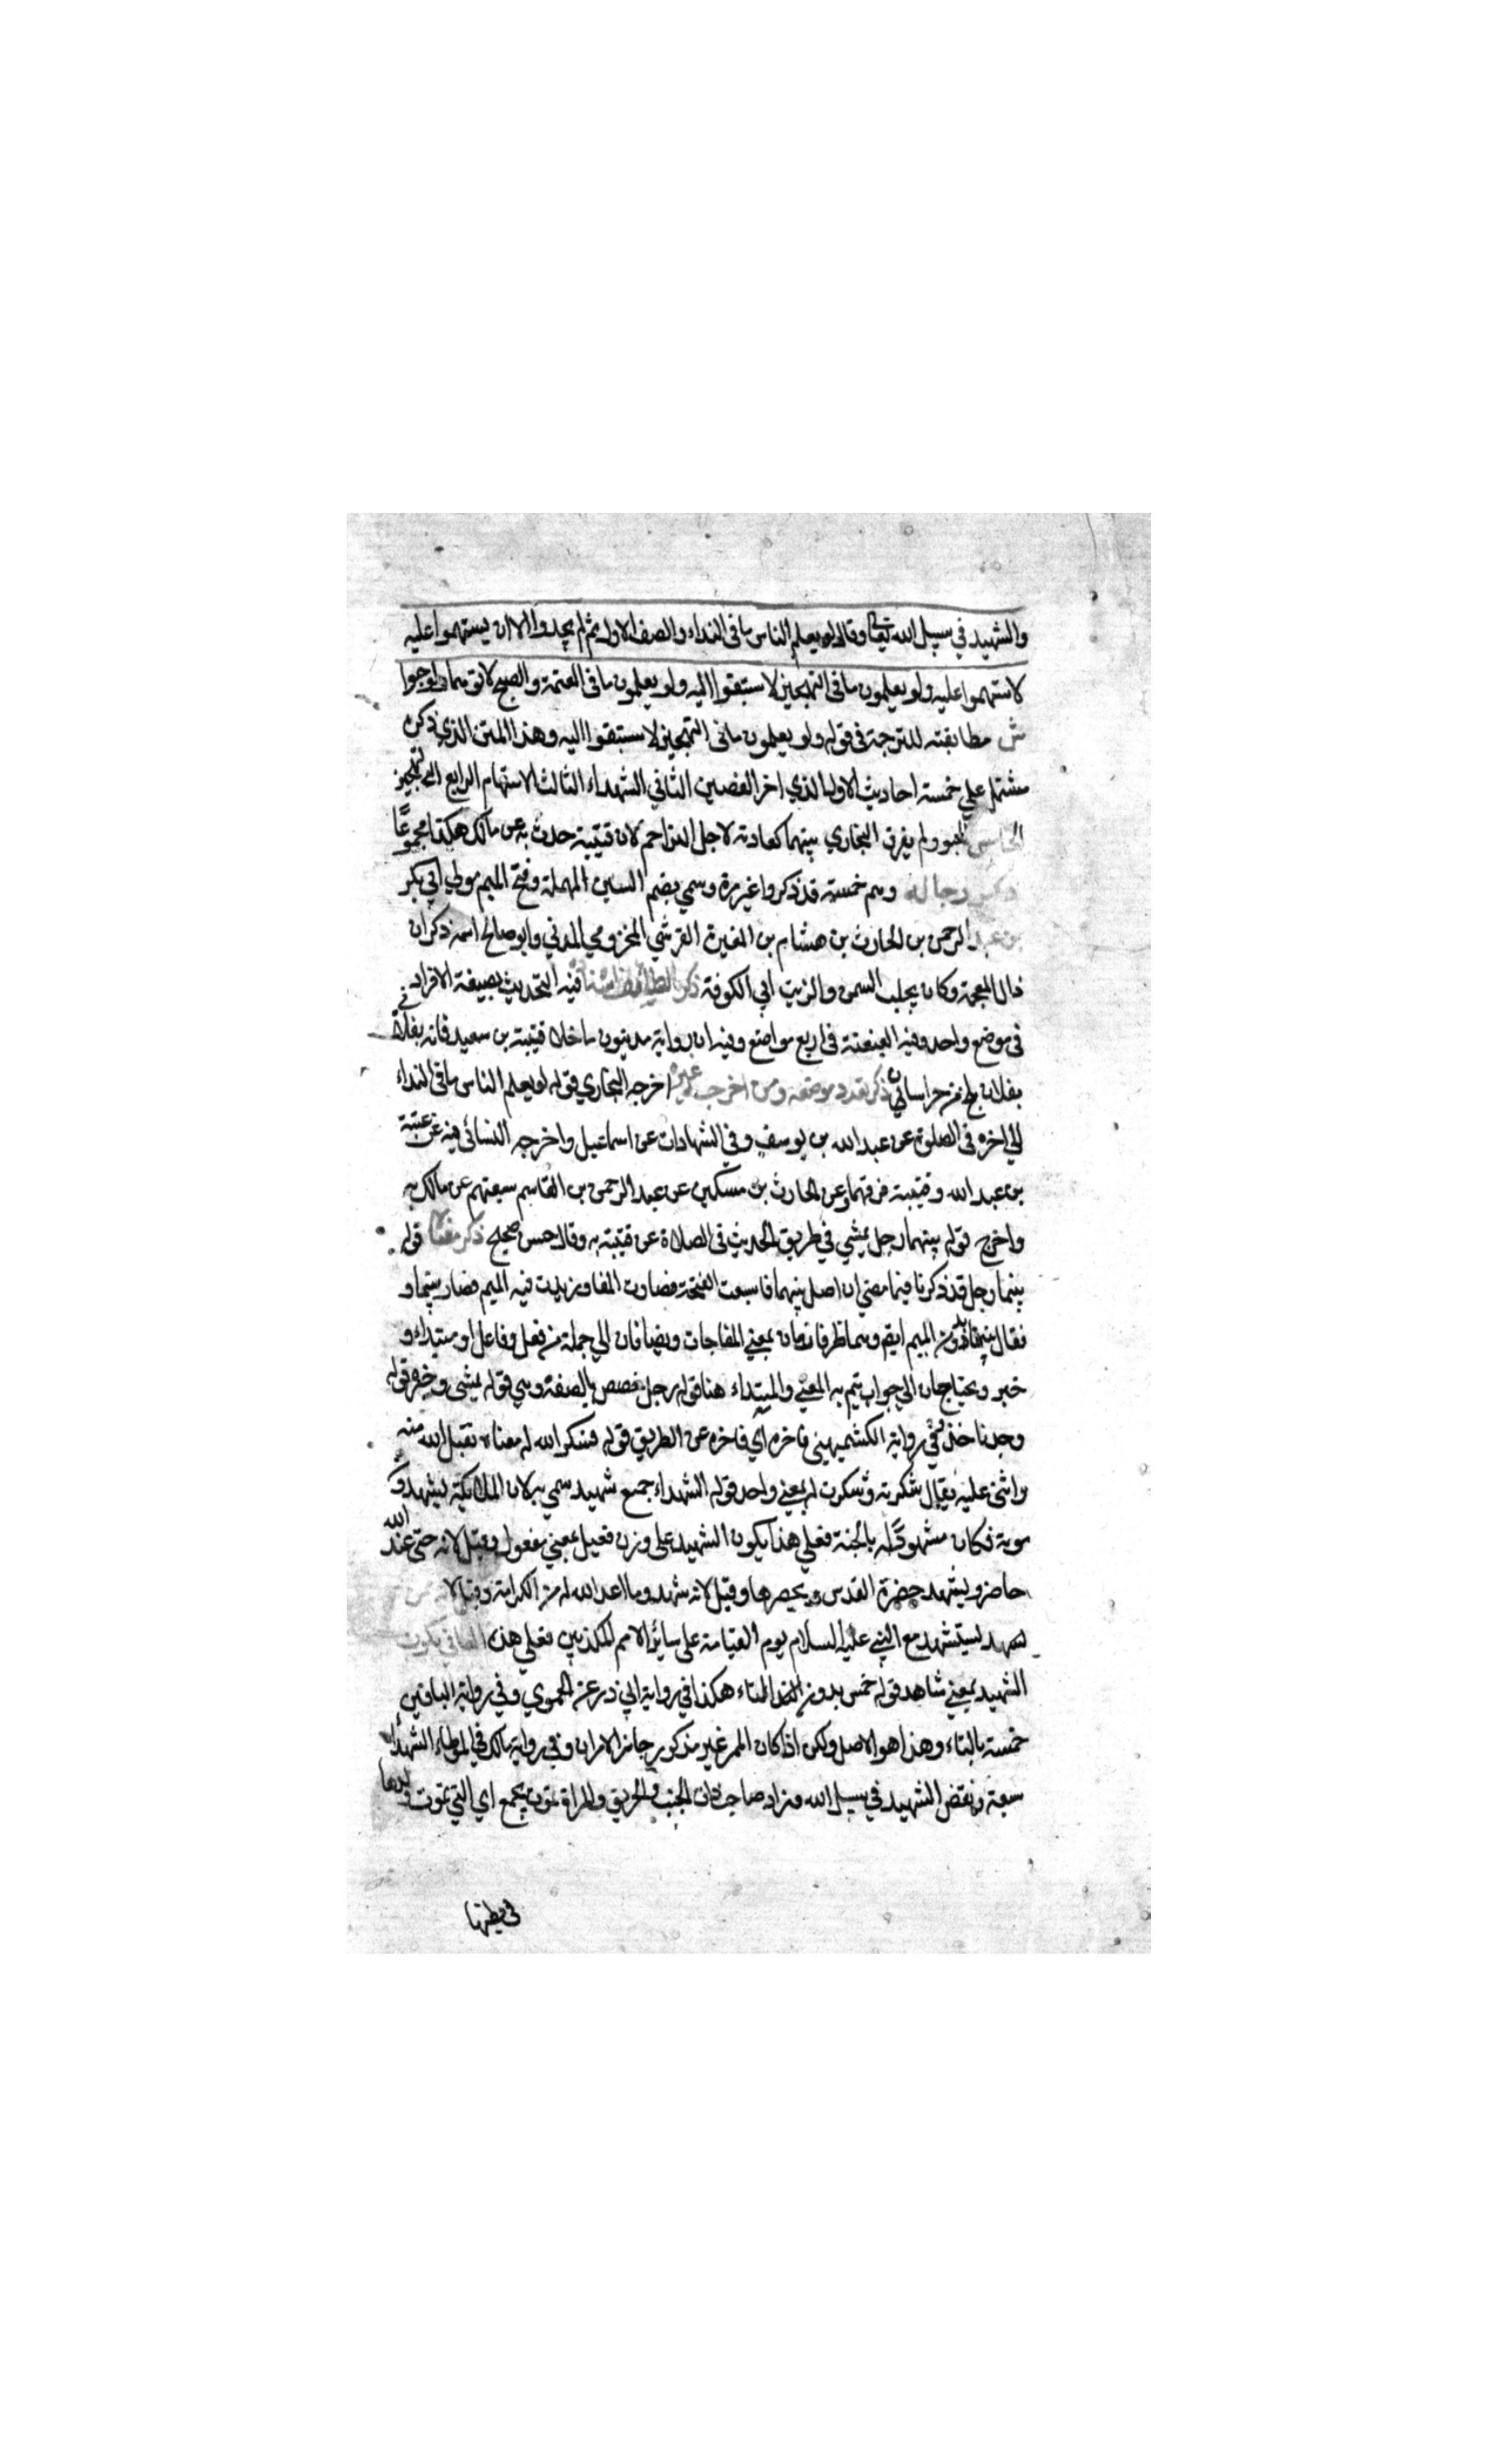 والشهيد في سبيل الله تعالى وقال لو يعلم الناس ما في النداء والصف الاول ثم لم يجدوا الا ان يستهموا عليه
لاستهموا عليه ولو يعلمون ما في التهجير لاستبقوا اليه ولو يعلمون ما في العتمة والصبح لاتوهما ولو حبوا
ش مطابقته للترجمة في قوله ولو يعلمون ما في التهجير لاستبقوا اليه وهذا المتن الذي ذكره
مشتمل علي خمسة احاديث الاول الذي اخر الغصين الثاني الشهداء الثالث الاستهام الرابع التهجير
الخامس الحبو ولم يفرق البخاري بينهما كعادته لاجل التراجم لان قتيبة حدث به عن مالك هكذا مجموعًا
ذكر رجاله وهم خمسة قد ذكروا غير مرة وسمي بضم السين المهملة وفتح الميم مولي ابي بكر
بن عبد الرحمن بن الحارث بن هشام بن المغيرة القرشي المخزومي المدني وابو صالح اسمه ذكران
ذال المعجمة وكان يجلب السمن والزيت الي الكوفة ذكر لطائف اسناده فيه التحديث بصيغة الافراد
في موضع واحد وفيه العنعنة في اربع مواضع وفيه ان رواية مدنيون ما خلا قتيبة بن سعيد فانه بغلاني
بغلان بلخ من خراسان ذكر تعدد موضعه ومن اخرجه غيره اخرجه البخاري قوله لو يعلم الناس ما في النداء
الي اخره في الصلوة عن عبد الله بن يوسف وفي الشهادات عن اسماعيل واخرجه النسائي فيه عن عتبة
بن عبد الله وقتيبة فرقهما وعن الحارث بن مسكين عن عبد الرحمن بن القاسم سبعتهم عن مالك به
واخرج قوله بينهما رجل يمشي في طريق الحديث في الصلاة عن قتيبة به وقال حسن صحيح ذكر معناه قوله
بينما رجل قد ذكرنا فيما مضي ان اصل بينهما فاسبعت الفتحة فصارت الفا وزيدت فيه الميم فصار بينما و
فقال بينا بدون الميم ايضا وهما ظرفا زمان بمعني المفاجات ويضافان الي جملة من فعل وفاعل او مبتداء و
خبر ويحتاجان الي جواب يتم به المعني والمبتداء هنا قوله رجل خصص بالصفة وهي قوله يمشي وخبره قوله
وجد فاخذه وفي رواية الكشميهني فاخره اي فاخره عن الطريق قوله فشكر الله له معناه تقبل الله منه
واثني عليه يقال شكرته وشكرت له بمعني واحد قوله الشهداء جمع شهيد سمي به لان الملائكة يشهدون
موته فكان مشهودًا له بالجنة فعلي هذا يكون الشهيد علي وزن فعيل بمعني مفعول وقيل لانه حي عند الله
حاضر ويشهد حضرة القدس ويحصرها وقيل لانه شهد وما اعد الله له من الكرامة وقيل لانه من
شهد يستشهد مع النبي عليه السلام يوم القيامة علي سائر الامم المكذبين فعلي هذه المعاني يكون
الشهيد بمعني شاهد قوله خمس بدون التاء هكذا في رواية ابي ذر عن الحموي وفي رواية الباقين
خمسة بالتاء وهذا هو الاصل ولكن اذا كان المميز غير مذكور جائز الامران وفي رواية مالك في الموطاء الشهداء
سبعة ونقص الشهيد في سبيل الله وزاد صاحب ذات الجنب والحريق والمراة تموت بجمع اي التي تموت ولدها
في بطنها